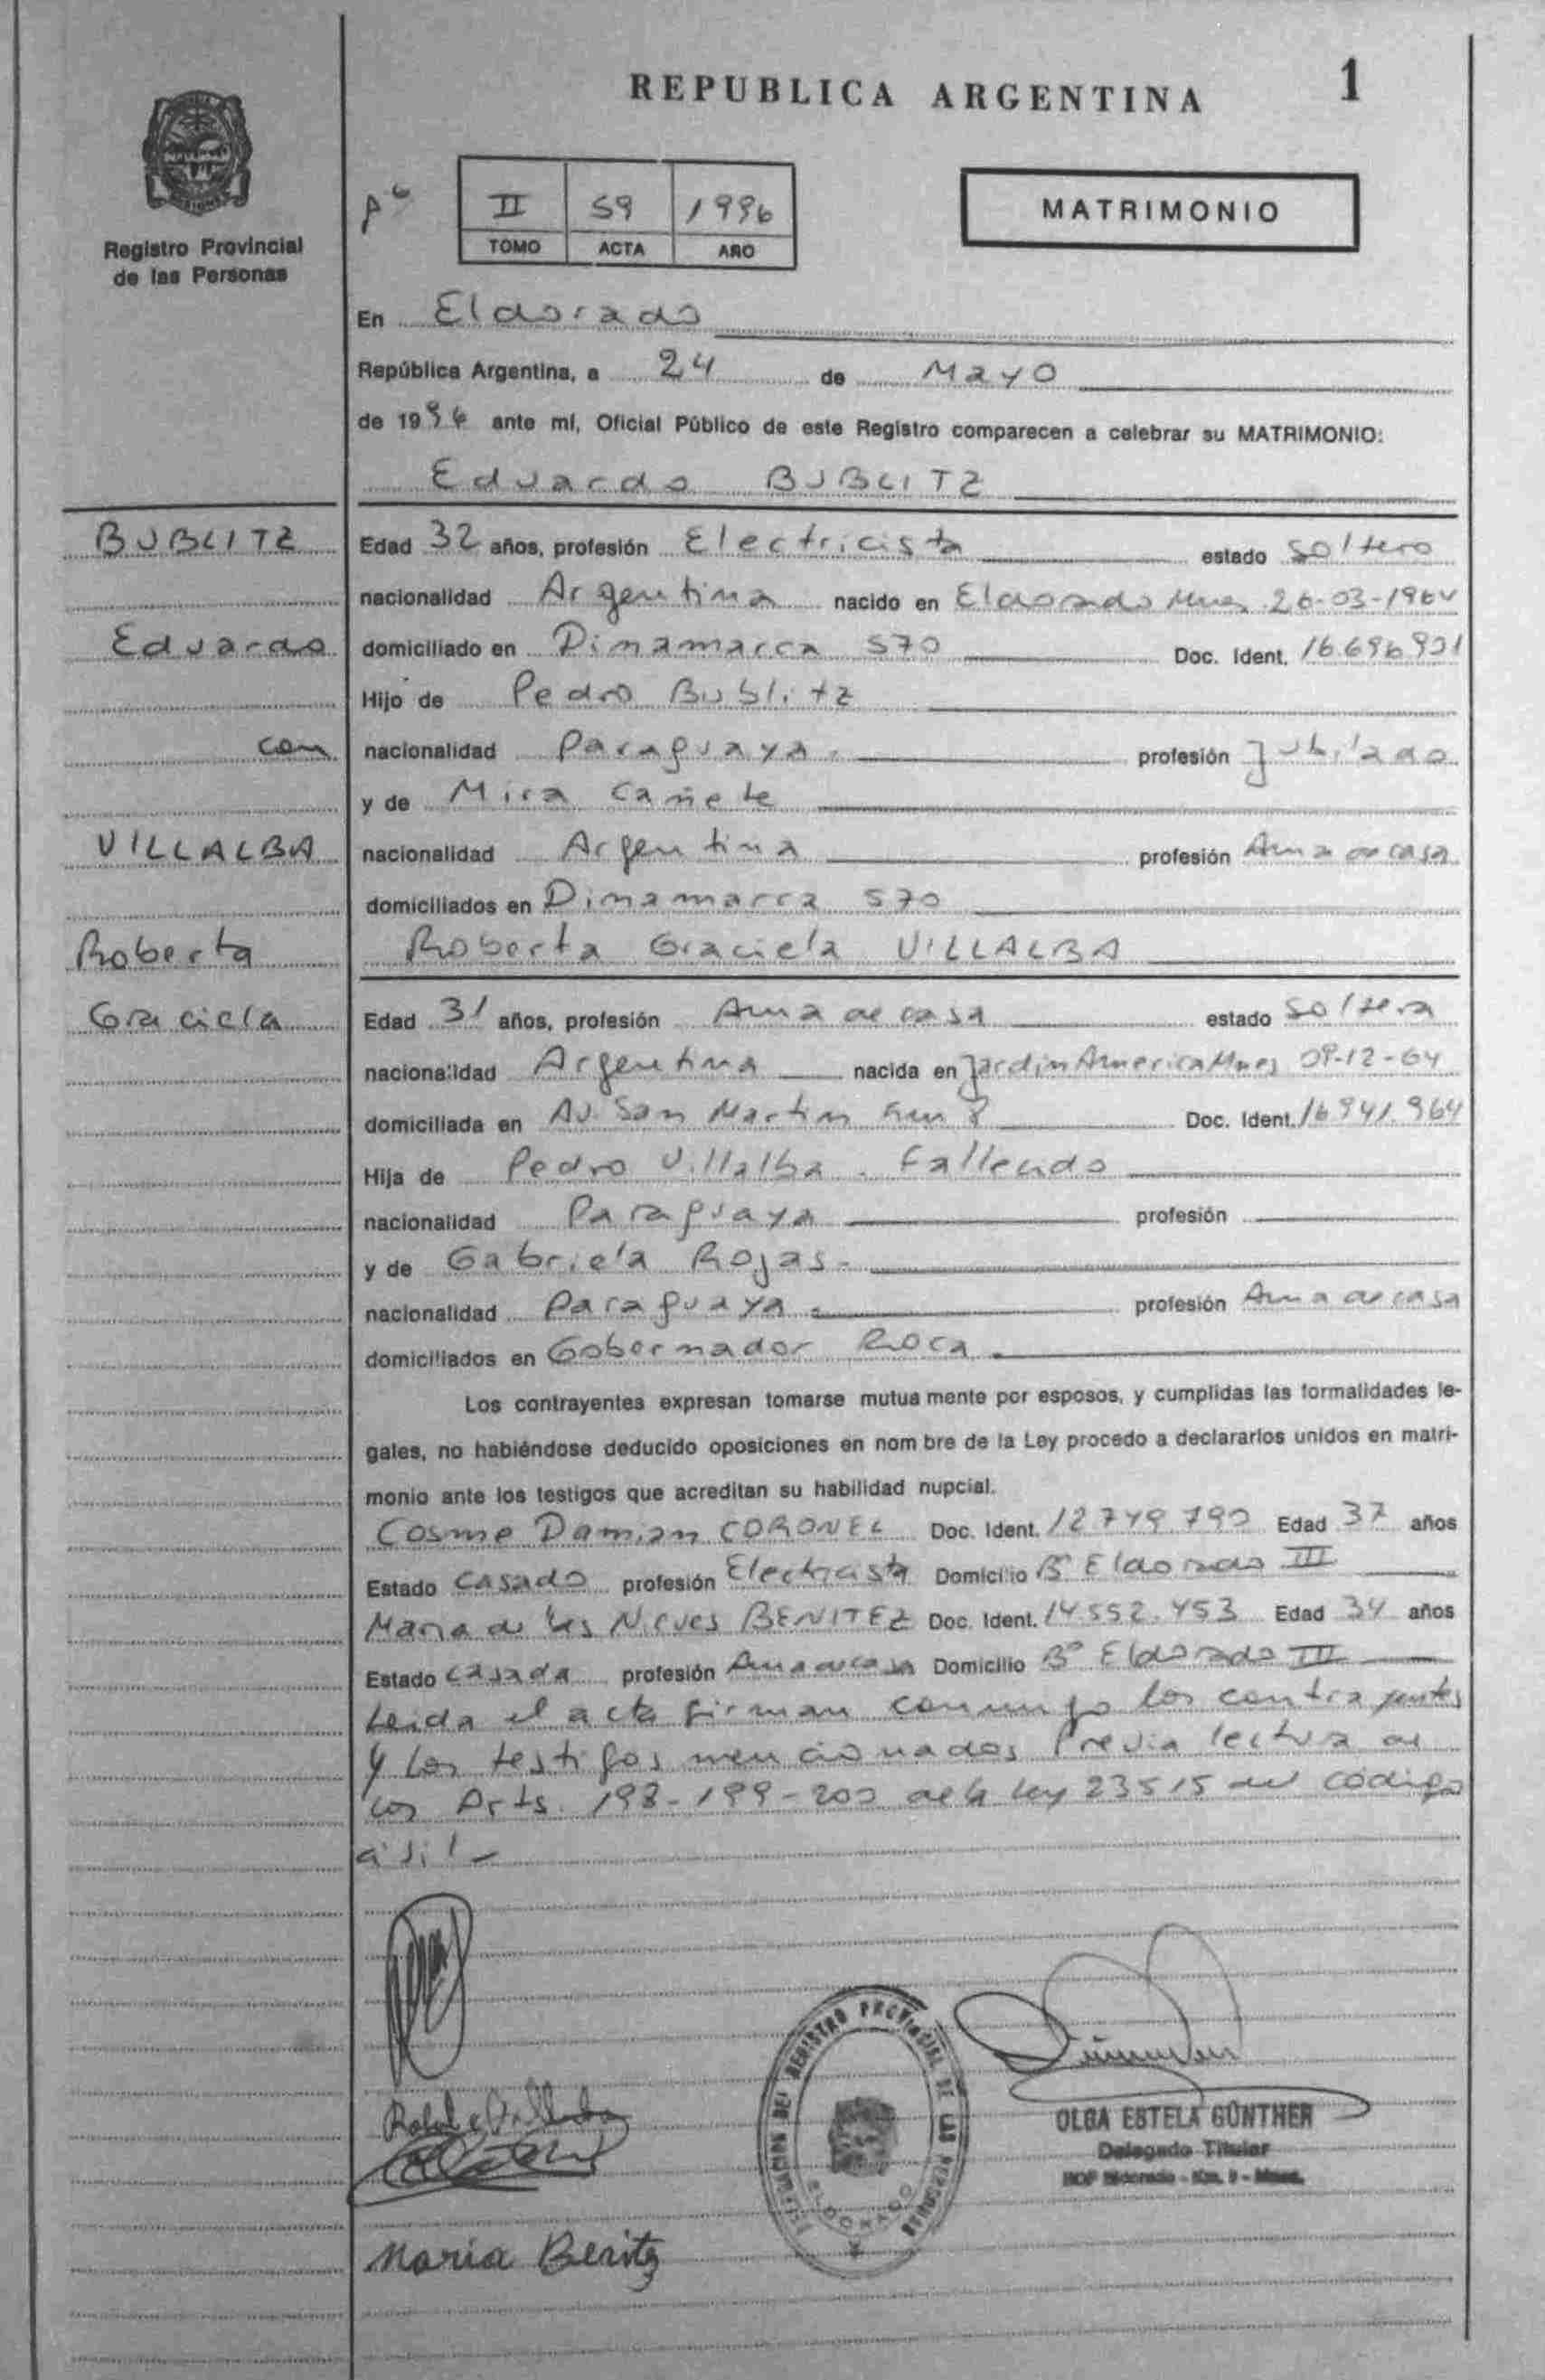 REPUBLICA ARGENTINA
1
Registro Provincial
de las Personas
II 59 1996
TOMO ACTA AÑO
MATRIMONIO
En Eldorado
República Argentina, a 24 de Mayo
de 1996 ante mí, Oficial Público de este Registro comparecen a celebrar su MATRIMONIO:
Eduardo BUBLITZ
BUBLITZ
Edad 32 años, profesión Electricista estado Soltero
nacionalidad Argentina nacido en Eldorado Mnes 26-03-1964
Eduardo
domiciliado en Dinamarca 570 Doc. Ident. 16.696.921
Hijo de Pedro Bublitz
con
nacionalidad Paraguaya. profesión Jubilado
y de Mira Cañete
VILLALBA
nacionalidad Argentina profesión Ama de casa
domiciliados en Dinamarca 570
Roberta
Roberta Graciela VILLALBA
Graciela
Edad 31 años, profesión Ama de casa estado Soltera
nacionalidad Argentina nacida en Jardin America Mnes 09-12-64
domiciliada en Av. San Martin Km 8 Doc. Ident. 16941.964
Hija de Pedro Villalba - Fallecido
nacionalidad Paraguaya profesión
y de Gabriela Rojas.
nacionalidad Paraguaya. profesión Ama de casa
domiciliados en Gobernador Roca.
Los contrayentes expresan tomarse mutua mente por esposos, y cumplidas las formalidades le-
gales, no habiéndose deducido oposiciones en nom bre de la Ley procedo a declararlos unidos en matri-
monio ante los testigos que acreditan su habilidad nupcial.
Cosme Damian CORONEL Doc. Ident. 12.749.790 Edad 37 años
Estado Casado profesión Electricista Domicilio Bº Eldorado III
Maria de las Nieves BENITEZ Doc. Ident. 14.552.453 Edad 34 años
Estado Casada profesión Ama de casa Domicilio Bº Eldorado III
Leida el acta firman conmigo los contrayentes
y los testigos mencionados Previa lectura de
los Arts. 198-199-200 de la ley 23515 del código
civil-
Maria Benitez
DELEGACION DEL REGISTRO PROVINCIAL DE LAS PERSONAS
ELDORADO
OLGA ESTELA GÜNTHER
Delegado Titular
RDP Eldorado - Km. 9 - Mnes.